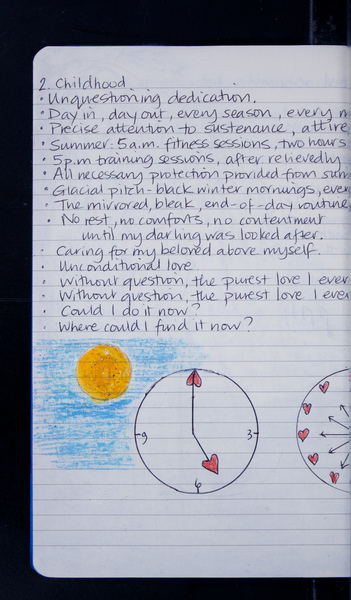 2. Childhood.
· Unquestioning dedication.
· Day in, day out, every season, every
· Precise attention to sustenance, attire
· Summer: 5a.m. fitness sessions, two hours
· 5p.m training sessions, after relievedly
· All necessary protection provided from
· Glacial pitch-black winter mornings, ever
· The mirrored, bleak, end-of-day routine,
· No rest, no comforts, no contentment
until my darling was looked after.
· Caring for my beloved above myself.
· Unconditional love
· Without question, the purest love I ever
· Without question, the purest love I ever
· Could I do it now?
· Where could I find it now?
9 3
6